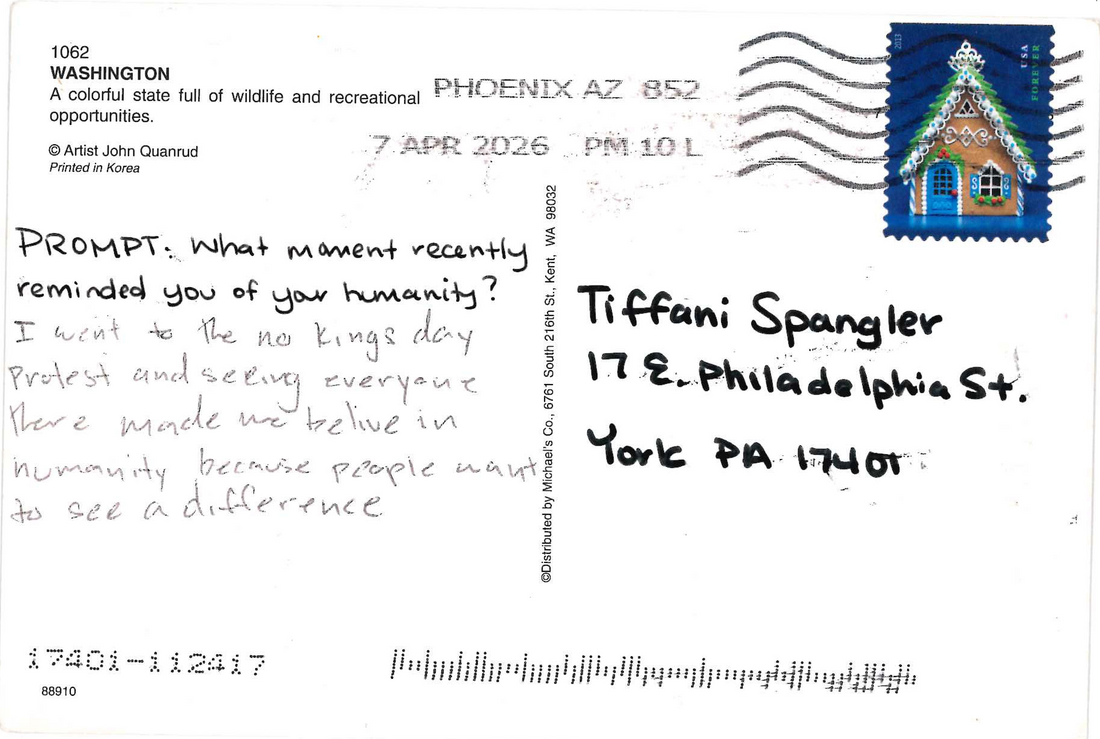 1062
WASHINGTON
A colorful state full of wildlife and recreational
opportunities.
© Artist John Quanrud
Printed in Korea
PHOENIX AZ 852
7 APR 2026 PM 10 L
2013
USA
FOREVER
PROMPT: What moment recently
reminded you of your humanity?
I went to the no kings day
Protest and seeing everyone
there made me belive in
humanity because people want
to see a difference
©Distributed by Michael's Co., 6761 South 216th St., Kent, WA 98032
Tiffani Spangler
17 E. Philadelphia St.
York PA 17401
17401-112417
88910